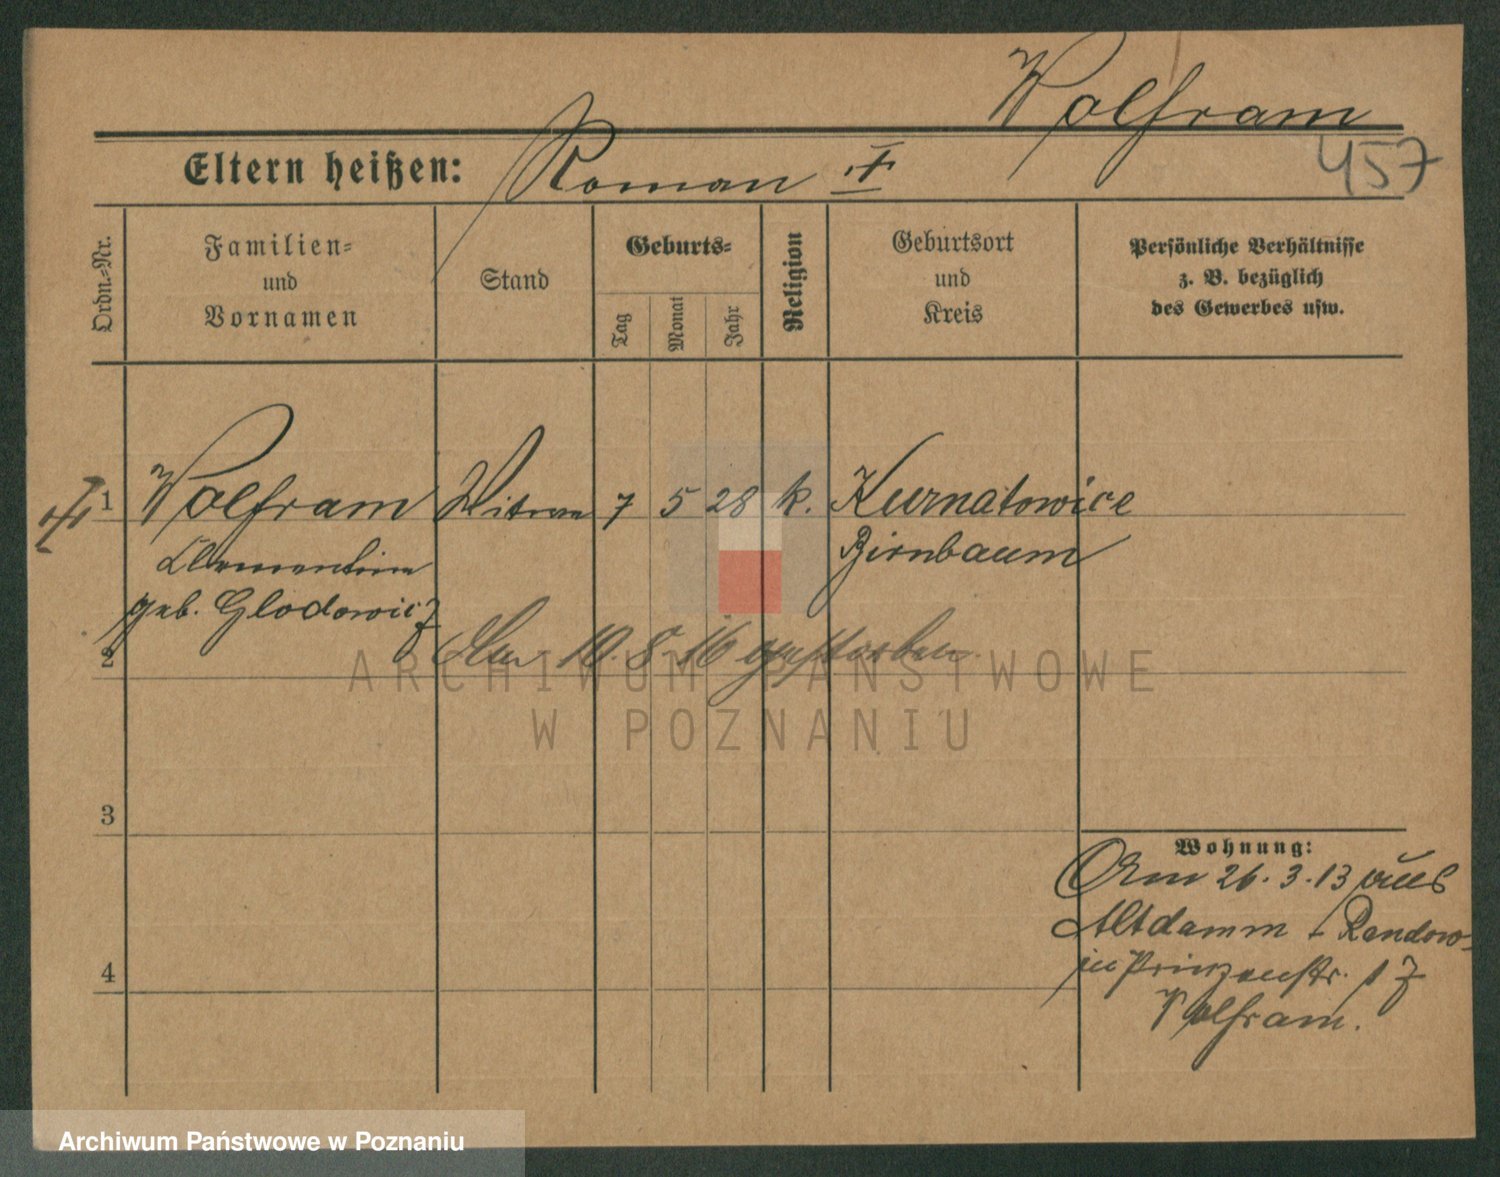 Wolfram
457
Eltern heißen: Roman †
Ordn.-Nr.
Familien-
und
Vornamen
Stand
Geburts-
Tag
Monat
Jahr
Religion
Geburtsort
und
Kreis
Persönliche Verhältnisse
z. B. bezüglich
des Gewerbes usw.
1 Wolfram Witwe 7 5 28 k. Kurnatowice
Clementine Birnbaum
geb. Glodowicz
2 Am 10.8.16 gestorben.
3
Wohnung:
Am 26.3.13 aus
Altdamm Randow
4
in Prinzenstr. 1 z
Wolfram.
ARCHIWUM PAŃSTWOWE
W POZNANIU
Archiwum Państwowe w Poznaniu